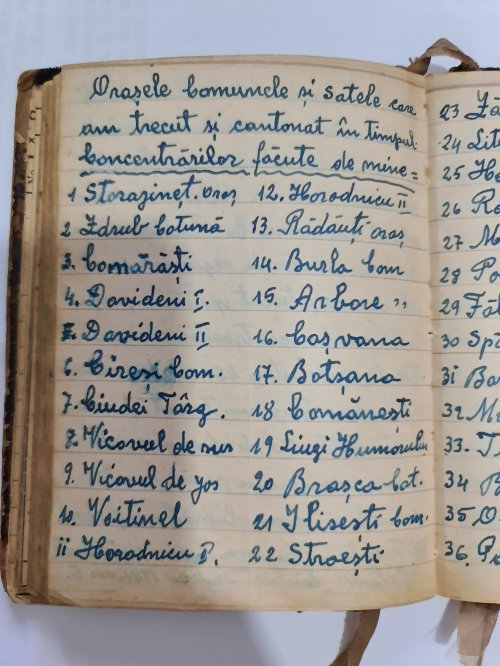 Orașele Comunele și Satele care
am trecut și cantonat în timpul
Concentrărilor făcute de mine =
1 Storojineț, oraș
2 Zdrub Cotună
3. Comărăști
4. Davideni I.
5. Davideni II
6. Cireși Com.
7. Ciudei Târg.
8. Vicovul de sus
9. Vicovul de jos
10. Voitinel
11 Horodnicu I.
12. Horodnicu II
13. Rădăuți oraș
14. Burla Com
15. Arbore "
16. Coșvana
17. Botșana
18 Comănești
19 Liuzi Humorului
20 Brașca Cot.
21 Ilisești Com.
22 Stroești
23
24
25
26
27
28
29
30
31
32
33.
34
35
36.